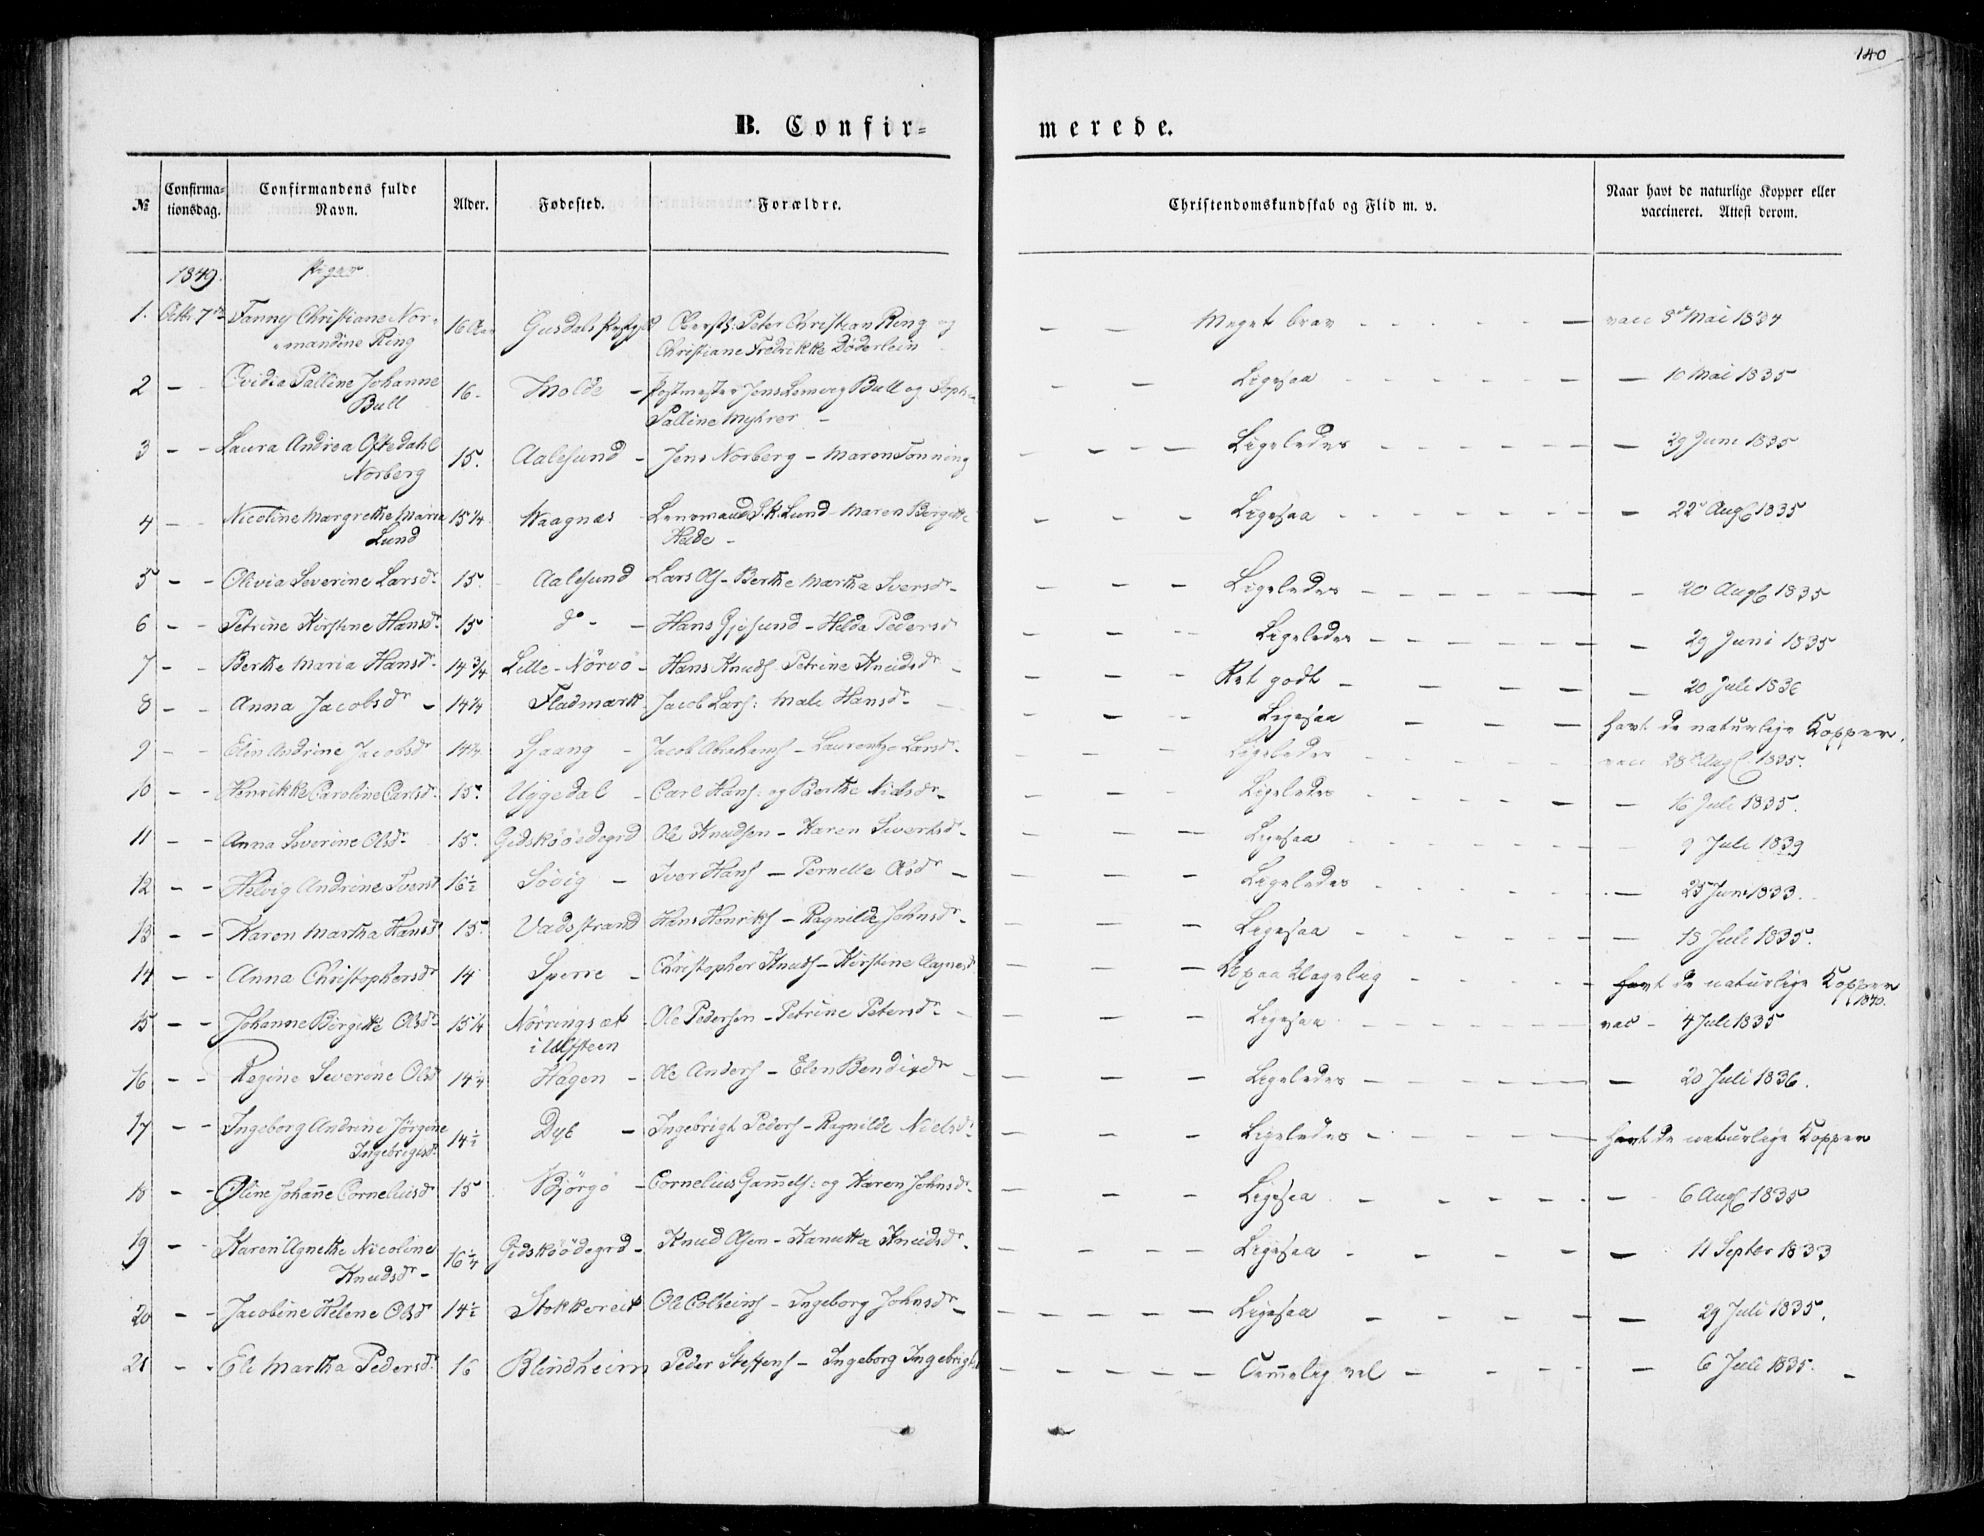 140
B. Confir=
merede.
№
Confirma-
tionsdag.
Confirmandens fulde
Navn.
Alder.
Fødested.
Forældre.
Christendomskundskab og Flid m. v.
Naar havt de naturlige Kopper eller
vaccineret. Attest derom.
1849. Piger
1. Octbr 7de Fanny Christiane Nor- 16 Aar Gusdals Præstgjeld Oberstl: Peter Christian Ring og — — Meget brav — vacc 8de Mai 1834
mandine Ring Christiane Fredrikke Døderlein
2 — — Ovidia Palline Johanne 16. Molde — Postmester Jens Lemvig Bull og Sophie — — Ligesaa — 10 Mai 1835
Bull Palline Myhrer —
3 — — Laura Andrea Oftedahl 15. Aalesund — Jens Norberg — Maren Tonning — — — Ligeledes — 29 Juni 1835
Norberg
4 — — Nicoline Margrethe Maria 15 1/4 Naagnæs Lensmand S. K. Lund — Maren Birgitte — — — Ligesaa — 22 Augt 1835
Lund Helde —
5 — — Olivia Severine Larsdr 15. Aalesund Lars Ols — Berthe Martha Iversdr — — — — Ligeledes — 20 Augt 1835
6 — — Petrine Kirstine Hansdr 15 do — Hans Gjøsund — Helda Pedersd — — — Ligeledes — 29 Juni 1835
7 — — Berthe Maria Hansdr 14 3/4 Lille-Nörvö — Hans Knuds Petrine Knudsdr — — — — Ret godt — 20 Juli 1836
8 — — Anna Jacobsdr — 14 1/4 Fladmark Jacob Lars: Male Hansdr — — — — Ligesaa — havt de naturlige Kopper.
9 — — Elin Andrine Jacobsdr 14 1/4 Gjaang — Jacob Abrahams — Laurentze Larsdr — — — Ligeledes — vacc 28 Augt 1835.
10 — — Henrikke Caroline Carlsdr 15. Uggedal — Carl Hans: og Berthe Nielsdr — — — — Ligeledes — 16 Juli 1835.
11 — — Anna Severine Olsdr 15. Gidsköödegrd Ole Knudsen — Karen Sivertsdr — — — — Ligesaa — 9 Juli 1839
12 — — Helvig Andrine Iversd 16 1/2 Sövig — Iver Hans — Pernelle Olsdr — — — — Ligeledes — 25 Juni 1833.
13 — — Karen Martha Hansd 15. Vadsstrand Hans Henriks — Ragnilde Johnsdr — — — — Ligesaa — 18 Juli 1835.
14 — — Anna Christophersdr 14 Sperre — Christopher Knuds — Kirstine Aagnesd — — — havt de naturlige Kopper
1840.
15 — — Johanne Birgitte Olsdr 15 1/4 Nörringsæt Ole Pedersen — Petrine Petersdr — — — — Ligesaa — vac — 4 Juli 1835
i Ulfsteen
16 — — Regine Severine Olsd 14 1/4 Hagen — Ole Anders — Elen Bendixdr — — — — Ligeledes — 20 Juli 1836.
17 — — Ingeborg Andrine Jørgine 14 1/2 Dyb — Ingebrigt Peders — Ragnilde Nielsdr — — — Ligeledes — havt de naturlige Kopper
Ingebrigtsdr
18 — — Oline Johanne Corneliusdr 15 Bjørgö — Cornelius Gammels: og Karen Johnsdr — — — — Ligesaa — 6 Augt 1835
19 — — Karen Agnethe Nicoline 16 1/4 Gidsköödegrd — Knud Olsen — Kanutta Knudsdr — — — — Ligesaa — 11 Septbr 1833
Knudsdr —
20 — — Jacobine Helene Olsdr 14 1/2 Stokkereit Ole Colbeins — Ingeborg Johnsdr — — — — — Ligesaa — 29 Juli 1835.
21 — — Eli Martha Pedersdr 16 Blindheim Peder Steffens — Ingeborg Ingebrigts — — — — Temmelig vel — 6 Juli 1835.